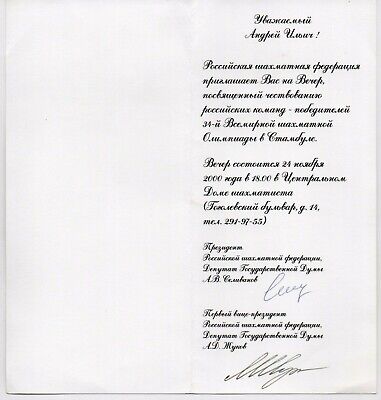 Уважаемый
Андрей Ильич!
Российская шахматная федерация
приглашает Вас на Вечер,
посвященный чествованию
российских команд - победителей
34-й Всемирной шахматной
Олимпиады в Стамбуле.
Вечер состоится 24 ноября
2000 года в 18.00 в Центральном
Доме шахматиста
(Гоголевский бульвар, д. 14,
тел. 291-97-55)
Президент
Российской шахматной федерации,
Депутат Государственной Думы
А.В. Селиванов
Первый вице-президент
Российской шахматной федерации,
Депутат Государственной Думы
А.Д. Жуков